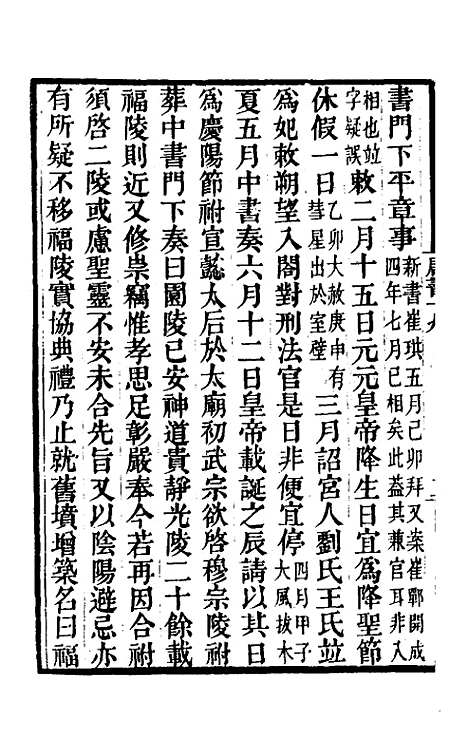 書門下平章事新書崔珙五月己卯拜又案崔鄲開成四年七月已相矣此蓋其兼官耳非入
相也竝字疑誤敕二月十五日元元皇帝降生日宜爲降聖節
休假一日乙卯大赦庚申有彗星出於室壁三月詔宮人劉氏王氏竝
爲妃敕朔望入閣對刑法官是日非便宜停四月甲子大風拔木
夏五月中書奏六月十二日皇帝載誕之辰請以其日
爲慶陽節祔宣懿太后於太廟初武宗欲啓穆宗陵祔
葬中書門下奏曰園陵已安神道貴靜光陵二十餘載
福陵則近又修崇竊惟孝思足彰嚴奉今若再因合祔
須啓二陵或慮聖靈不安未合先旨又以陰陽避忌亦
有所疑不移福陵實協典禮乃止就舊墳增築名曰福